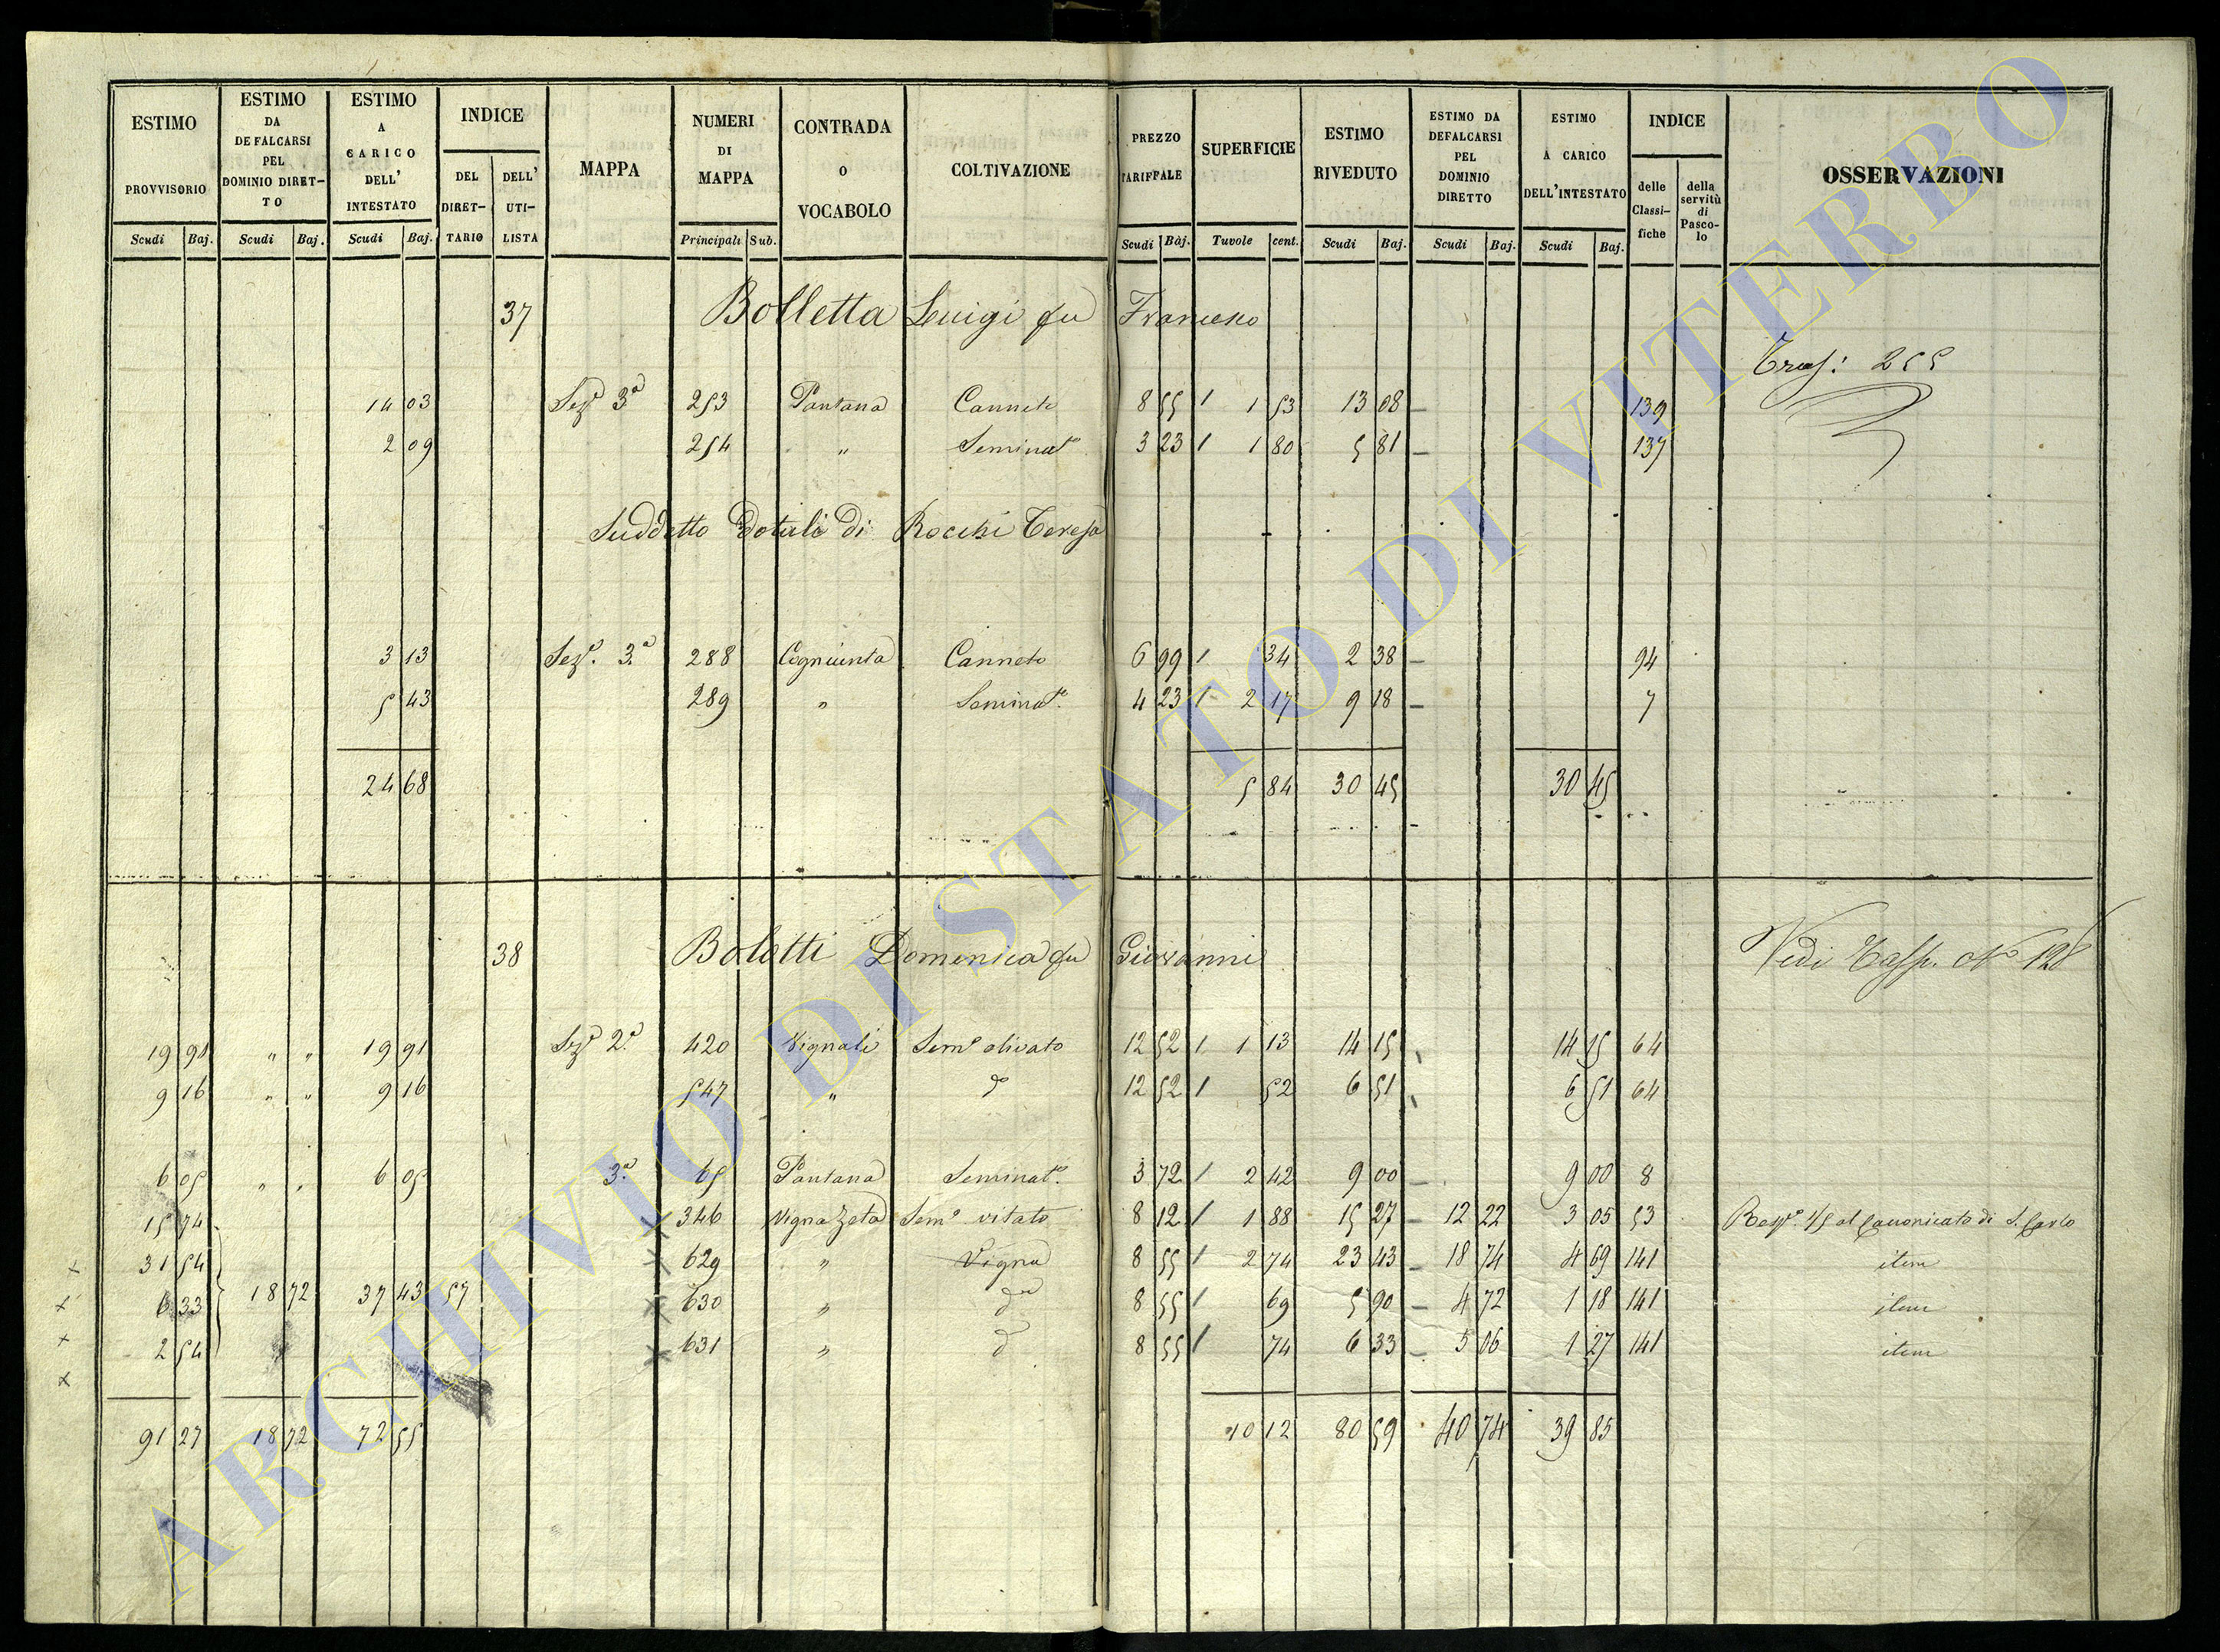 ESTIMO PROVVISORIO Scudi Baj. ESTIMO DA DEFALCARSI PEL DOMINIO DIRET-TO Scudi Baj. ESTIMO A CARICO DELL' INTESTATO Scudi Baj. INDICE DEL DIRET-TARIO DELL' UTI-LISTA MAPPA NUMERI DI MAPPA Principali Sub. CONTRADA O VOCABOLO COLTIVAZIONE PREZZO TARIFFALE Scudi Baj. SUPERFICIE Tavole cent. ESTIMO RIVEDUTO Scudi Baj. ESTIMO DA DEFALCARSI PEL DOMINIO DIRETTO Scudi Baj. ESTIMO A CARICO DELL'INTESTATO Scudi Baj. INDICE delle Classi-fiche della servitù di Pasco-lo OSSERVAZIONI
37 Bolletta Luigi fu Francesco
Trasf: 255
14 03 Sezᵉ 3ª 253 Pantana Canneto 8 55 1 1 53 13 08 139
2 09 254 " Seminatº 3 23 1 1 80 5 81 137
Suddetto dotali di Rocchi Teresa
3 13 Sezᵉ. 3ª 288 Cogniunta Canneto 6 99 1 34 2 38 94
5 43 289 " Seminatº. 4 23 1 2 17 9 18 7
24 68 5 84 30 45 30 45
38 Boletti Domenica fu Giovanni Vedi Nº 128
19 91 " " 19 91 Sezᵉ 2ª 420 Vignali Semº olivato 12 52 1 1 13 14 15 14 15 64
9 16 " " 9 16 547 " dº 12 52 1 52 6 51 6 51 64
6 05 " " 6 05 3ª 65 Pantana Seminatº. 3 72 1 2 42 9 00 9 00 8
15 74 x 346 Vigna Zeta Semº vitato 8 12 1 1 88 15 27 12 22 3 05 53 Respº. 1/5 al Canonicato di S. Carlo
x 31 54 x 629 " Vigna 8 55 1 2 74 23 43 18 74 4 69 141 item
x 6 33 18 72 37 43 57 x 630 " dª 8 55 1 69 5 90 4 72 1 18 141 item
x 2 54 x 631 " d 8 55 1 74 6 33 5 06 1 27 141 item
x
91 27 18 72 72 55 10 12 80 59 40 74 39 85
ARCHIVIO DI STATO DI VITERBO